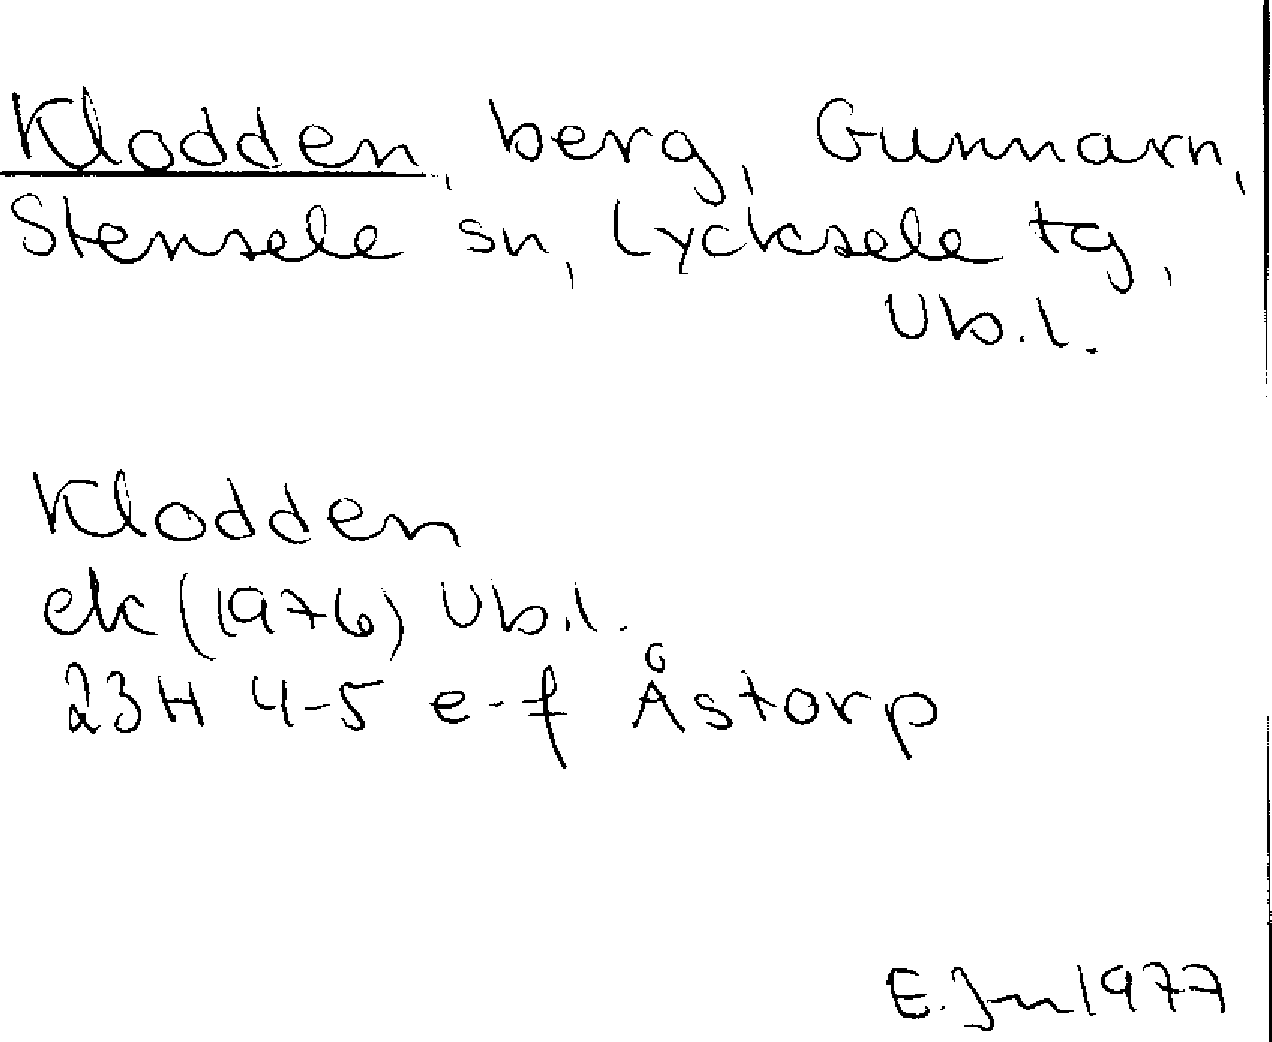 Klodden, berg, Gunnarn,
Stensele sn, Lycksele tg,
Vb.l.
Klodden
ek (1976) Vb.l.
23H 4-5 e-f Åstorp
E. 1977